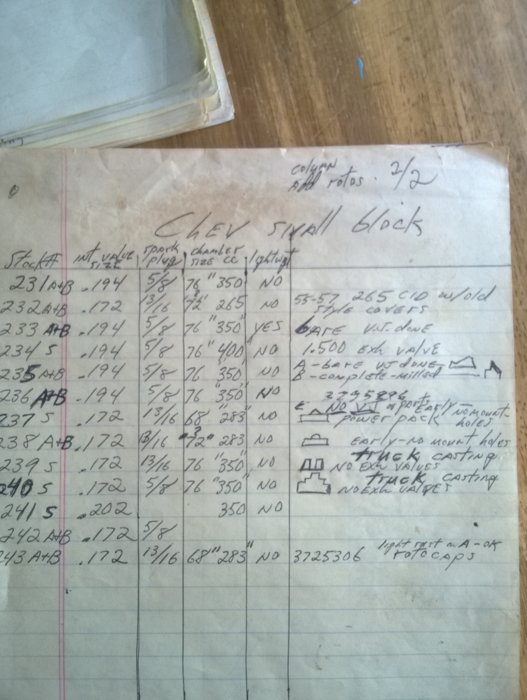 column
Add rotos. 2/2
Chev small block
Stock# int. valve size spark plug chamber size cc lightwgt
231 A+B .194 5/8 76 "350" NO
232 A+B .172 13/16 72 265 NO 55-57 265 CID w/old style covers
233 A+B .194 5/8 76 "350" YES bare V.J. done
234 S .194 5/8 76 "400" NO 1.500 exh valve
235 A+B .194 5/8 76 350 NO A-bare V.J. done
B-complete-milled
236 A+B .194 5/8 76 "350" NO
237 S .172 13/16 68 "283" NO power pack early-no mount holes
238 A+B .172 13/16 72 "283 NO early-no mount holes
239 S .172 13/16 76 "350" NO truck casting
NO Exh valves
240 S .172 5/8 76 "350" NO truck casting
NO Exh valves
241 S .202 350 NO
242 A+B .172 5/8
243 A+B .172 13/16 68 "283" NO 3725306 light rust in A-OK
rotocaps